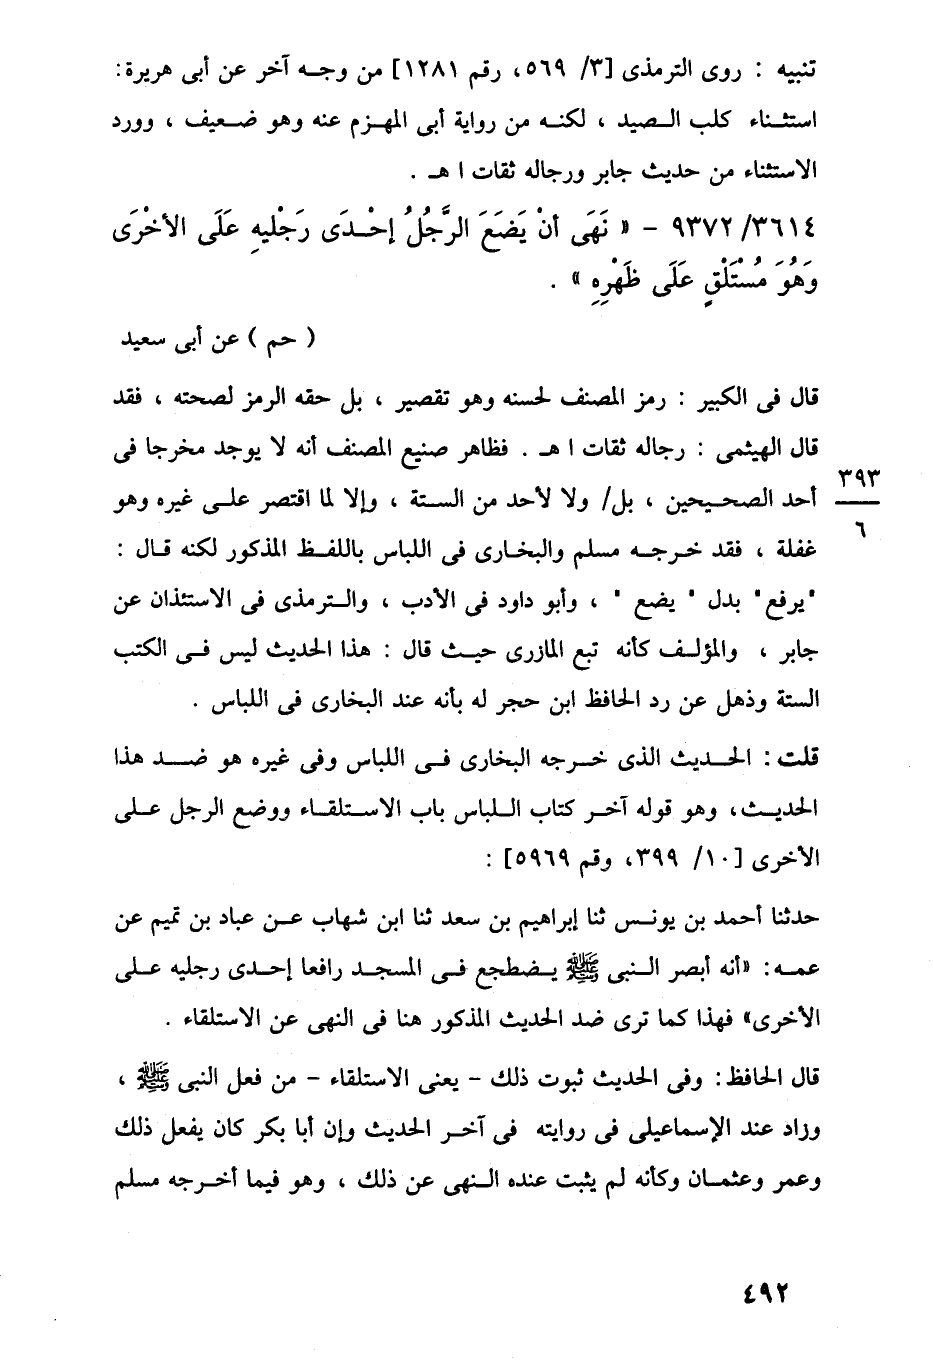 تنبيه : روى الترمذى [٣/ ٥٦٩، رقم ١٢٨١] من وجـه آخر عن أبى هريرة:
استثـناء كلب الـصيد ، لكنـه من رواية أبى المهـزم عنه وهو ضـعيف ، وورد
الاستثناء من حديث جابر ورجاله ثقات ا هـ .
٩٣٧٢/٣٦١٤ - « نَهَى أنْ يَضَعَ الرَّجُلُ إحْـدَى رَجْليهِ عَلَى الأخْرَى
وَهُوَ مُسْتَلْقٍ عَلَى ظَهْرِهِ » .
( حم ) عن أبى سعيد
قال فى الكبير : رمز المصنف لحسنه وهو تقصير ، بل حقه الرمز لصحته ، فقد
قال الهيثمى : رجاله ثقات ا هـ . فظاهر صنيع المصنف أنه لا يوجد مخرجا فى
أحد الصحـيحين ، بل/ ولا لأحد من الستة ، وإلا لما اقتصر علـى غيره وهو
٣٩٣
٦
غفلة ، فقد خـرجـه مسلم والبخـارى فى اللباس باللفـظ المذكور لكنه قـال :
"يرفع" بدل " يضع " ، وأبو داود فى الأدب ، والـترمذى فى الاستئذان عن
جابر ، والمؤلـف كأنه تبع المازرى حيـث قال : هذا الحديث ليس فـى الكتب
الستة وذهل عن رد الحافظ ابن حجر له بأنه عند البخارى فى اللباس .
قلت : الحـديث الذى خـرجه البخارى فـى اللباس وفى غيره هو ضـد هذا
الحديـث، وهو قوله آخـر كتاب الـلباس باب الاسـتلقـاء ووضع الرجل علـى
الأخرى [١٠/ ٣٩٩، وقم ٥٩٦٩] :
حدثنا أحمد بن يونـس ثنا إبراهيم بن سعد ثنا ابن شهاب عـن عباد بن تميم عن
عمـه: «أنه أبصر الـنبى ﷺ يـضطجع فـى المسجـد رافعا إحـدى رجليه علـى
الأخرى» فهذا كما ترى ضد الحديث المذكور هنا فى النهى عن الاستلقاء .
قال الحافظ: وفى الحديث ثبوت ذلك - يعنى الاستلقاء - من فعل النبى ﷺ ،
وزاد عند الإسماعيلى فى روايته فى آخـر الحديث وإن أبا بكر كان يفعل ذلك
وعمر وعثمـان وكأنه لم يثبت عنده الـنهى عن ذلك ، وهو فيما أخـرجه مسلم
٤٩٢